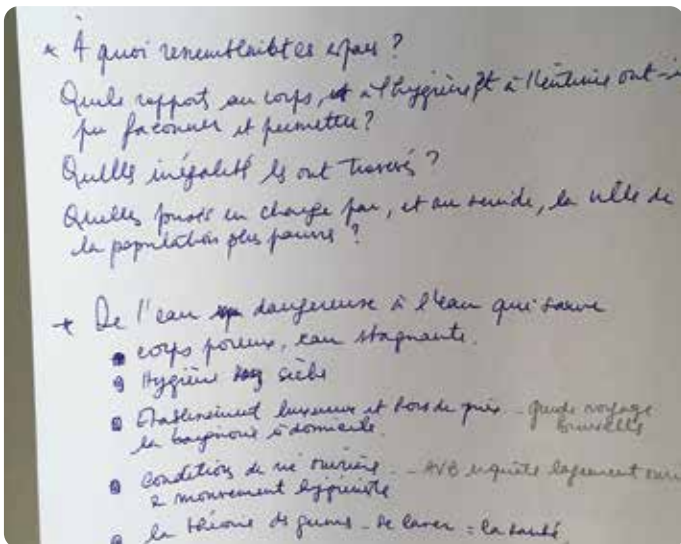 * À quoi ressemblaient ces espaces ?
Quels rapports au corps, et à l'hygiène et à l'intime ont-i
pu façonner et permettre ?
Quelles inégalités les ont traversés ?
Quelles prises en charge par, et au sein de, la ville de
la population plus pauvre ?
* De l'eau dangereuse à l'eau qui sauve
corps poreux, eau stagnante.
Hygiène sèche
Etablissement luxueux et hors de prix - guide voyage
la baignoire à domicile. bruxelles
Condition de vie ouvrière - AVB enquête logement ouvri
& mouvement hygiéniste
la théorie des germes - se laver = la santé